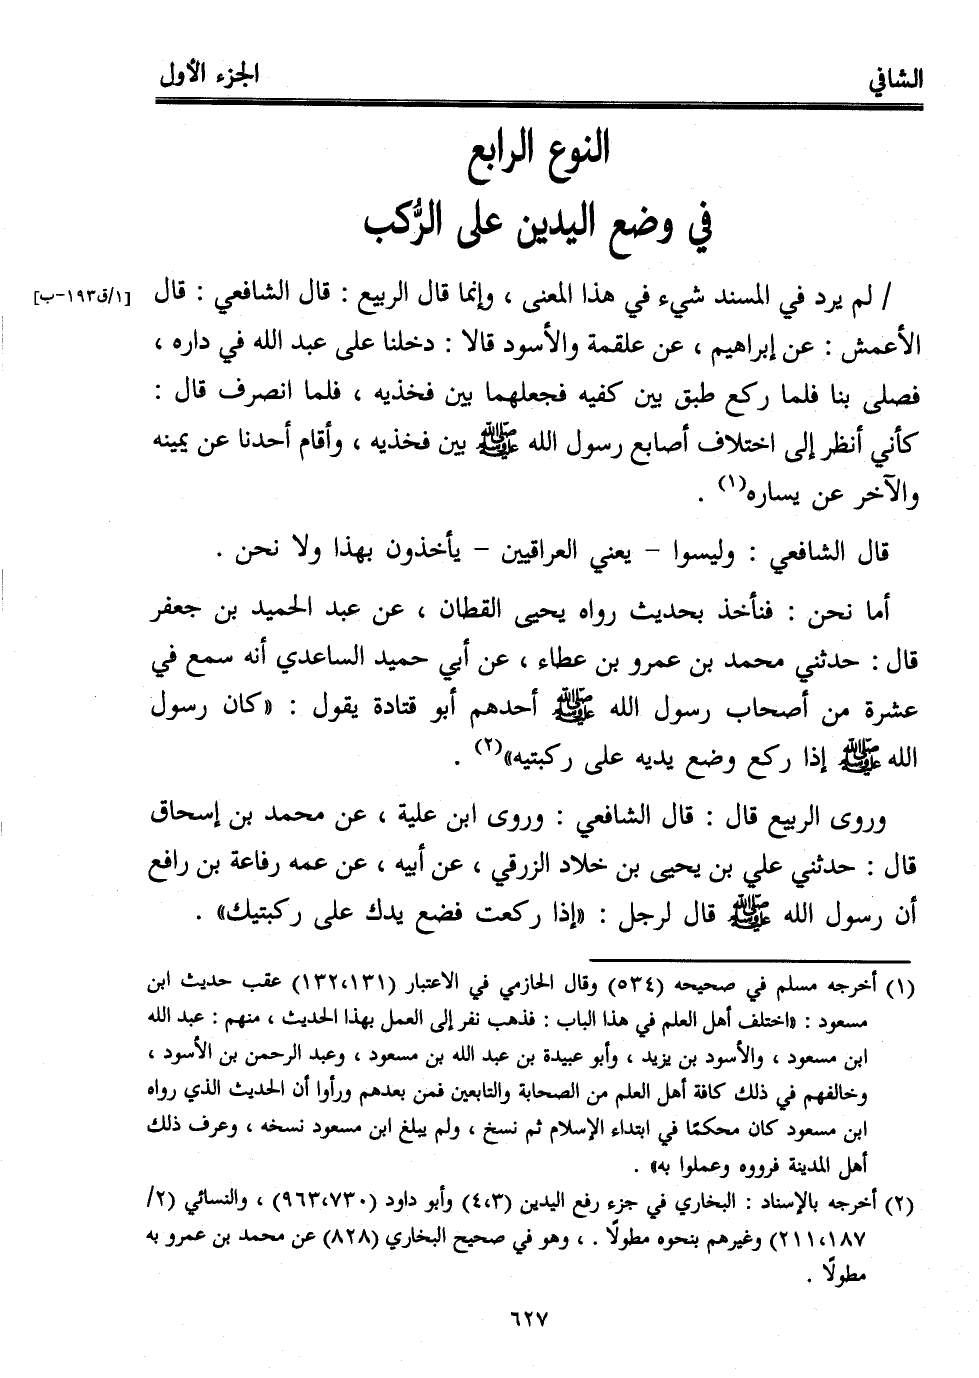 الشافي الجزء الأول
النوع الرابع
في وضع اليدين على الرُّكب
/ لم يرد في المسند شيء في هذا المعنى ، وإنما قال الربيع : قال الشافعي : قال [١/ق١٩٣-ب]
الأعمش : عن إبراهيم ، عن علقمة والأسود قالا : دخلنا على عبد الله في داره ،
فصلى بنا فلما ركع طبق بين كفيه فجعلهما بين فخذيه ، فلما انصرف قال :
كأني أنظر إلى اختلاف أصابع رسول الله ﷺ بين فخذيه ، وأقام أحدنا عن يمينه
والآخر عن يساره(١) .
قال الشافعي : وليسوا – يعني العراقيين – يأخذون بهذا ولا نحن .
أما نحن : فنأخذ بحديث رواه يحيى القطان ، عن عبد الحميد بن جعفر
قال : حدثني محمد بن عمرو بن عطاء ، عن أبي حميد الساعدي أنه سمع في
عشرة من أصحاب رسول الله ﷺ أحدهم أبو قتادة يقول : «كان رسول
الله ﷺ إذا ركع وضع يديه على ركبتيه»(٢) .
وروى الربيع قال : قال الشافعي : وروى ابن علية ، عن محمد بن إسحاق
قال : حدثني علي بن يحيى بن خلاد الزرقي ، عن أبيه ، عن عمه رفاعة بن رافع
أن رسول الله ﷺ قال لرجل : «إذا ركعت فضع يدك على ركبتيك» .
(١) أخرجه مسلم في صحيحه (٥٣٤) وقال الحازمي في الاعتبار (١٣٢،١٣١) عقب حديث ابن
مسعود : «اختلف أهل العلم في هذا الباب : فذهب نفر إلى العمل بهذا الحديث ، منهم : عبد الله
ابن مسعود ، والأسود بن يزيد ، وأبو عبيدة بن عبد الله بن مسعود ، وعبد الرحمن بن الأسود ،
وخالفهم في ذلك كافة أهل العلم من الصحابة والتابعين فمن بعدهم ورأوا أن الحديث الذي رواه
ابن مسعود كان محكمًا في ابتداء الإسلام ثم نسخ ، ولم يبلغ ابن مسعود نسخه ، وعرف ذلك
أهل المدينة فرووه وعملوا به» .
(٢) أخرجه بالإسناد : البخاري في جزء رفع اليدين (٤،٣) وأبو داود (٩٦٣،٧٣٠) ، والنسائي (٢/
٢١١،١٨٧) وغيرهم بنحوه مطولًا . ، وهو في صحيح البخاري (٨٢٨) عن محمد بن عمرو به
مطولًا .
٦٢٧